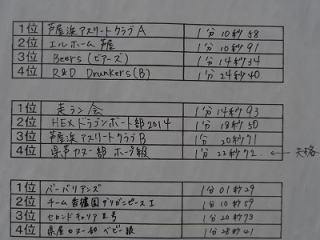 1位 芦屋浜アスリートクラブA 1分10秒58
2位 エルホーム芦屋 1分10秒91
3位 Beers(ビアーズ) 1分14秒34
4位 R&D Drunkers(B) 1分24秒40
1位 走ラン会 1分14秒93
2位 HEXドラゴンボート部2014 1分18秒50
3位 芦屋浜アスリートクラブB 1分20秒71
4位 県芦カヌー部 ホープ級 1分22秒72 ← 失格
1位 バーバリアンズ 1分01秒29
2位 チーム香櫨園 1分10秒59
3位 セカンドキャリア 1分20秒73
4位 県芦カヌー部 1分28秒41